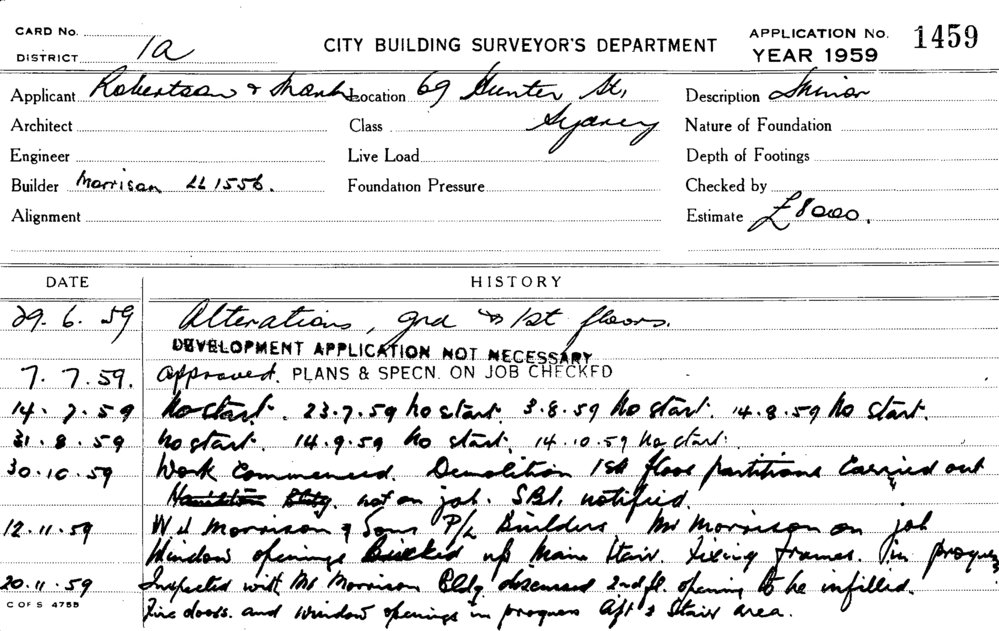 CARD No.
DISTRICT 1a
CITY BUILDING SURVEYOR'S DEPARTMENT
APPLICATION No. 1459
YEAR 1959
Applicant Robertson & Marks Location 69 Hunter St, Description Minor
Architect Class Sydney Nature of Foundation
Engineer Live Load Depth of Footings
Builder Morrison LL1556. Foundation Pressure Checked by
Alignment Estimate £8000.
DATE HISTORY
29.6.59 Alterations, grd & 1st floors.
DEVELOPMENT APPLICATION NOT NECESSARY
7.7.59. Approved. PLANS & SPECN. ON JOB CHECKED
14.7.59 No start. 23.7.59 No start. 3.8.59 No start. 14.8.59 No start.
31.8.59 No start. 14.9.59 No start. 14.10.59 No start.
30.10.59 Work Commenced. Demolition 1st floor partitions Carried out
Bldg. not on job. notified.
12.11.59 W.J. Morrison & Sons P/L Builders Mr Morrison on job
Window openings Bricked up Main Stair. Fixing frames. in progress
20.11.59 Inspected with Mr Morrison Bldg discussed 2nd fl. opening to be infilled.
Fire doors. and window openings in progress & Stair area.
C OF S 475B